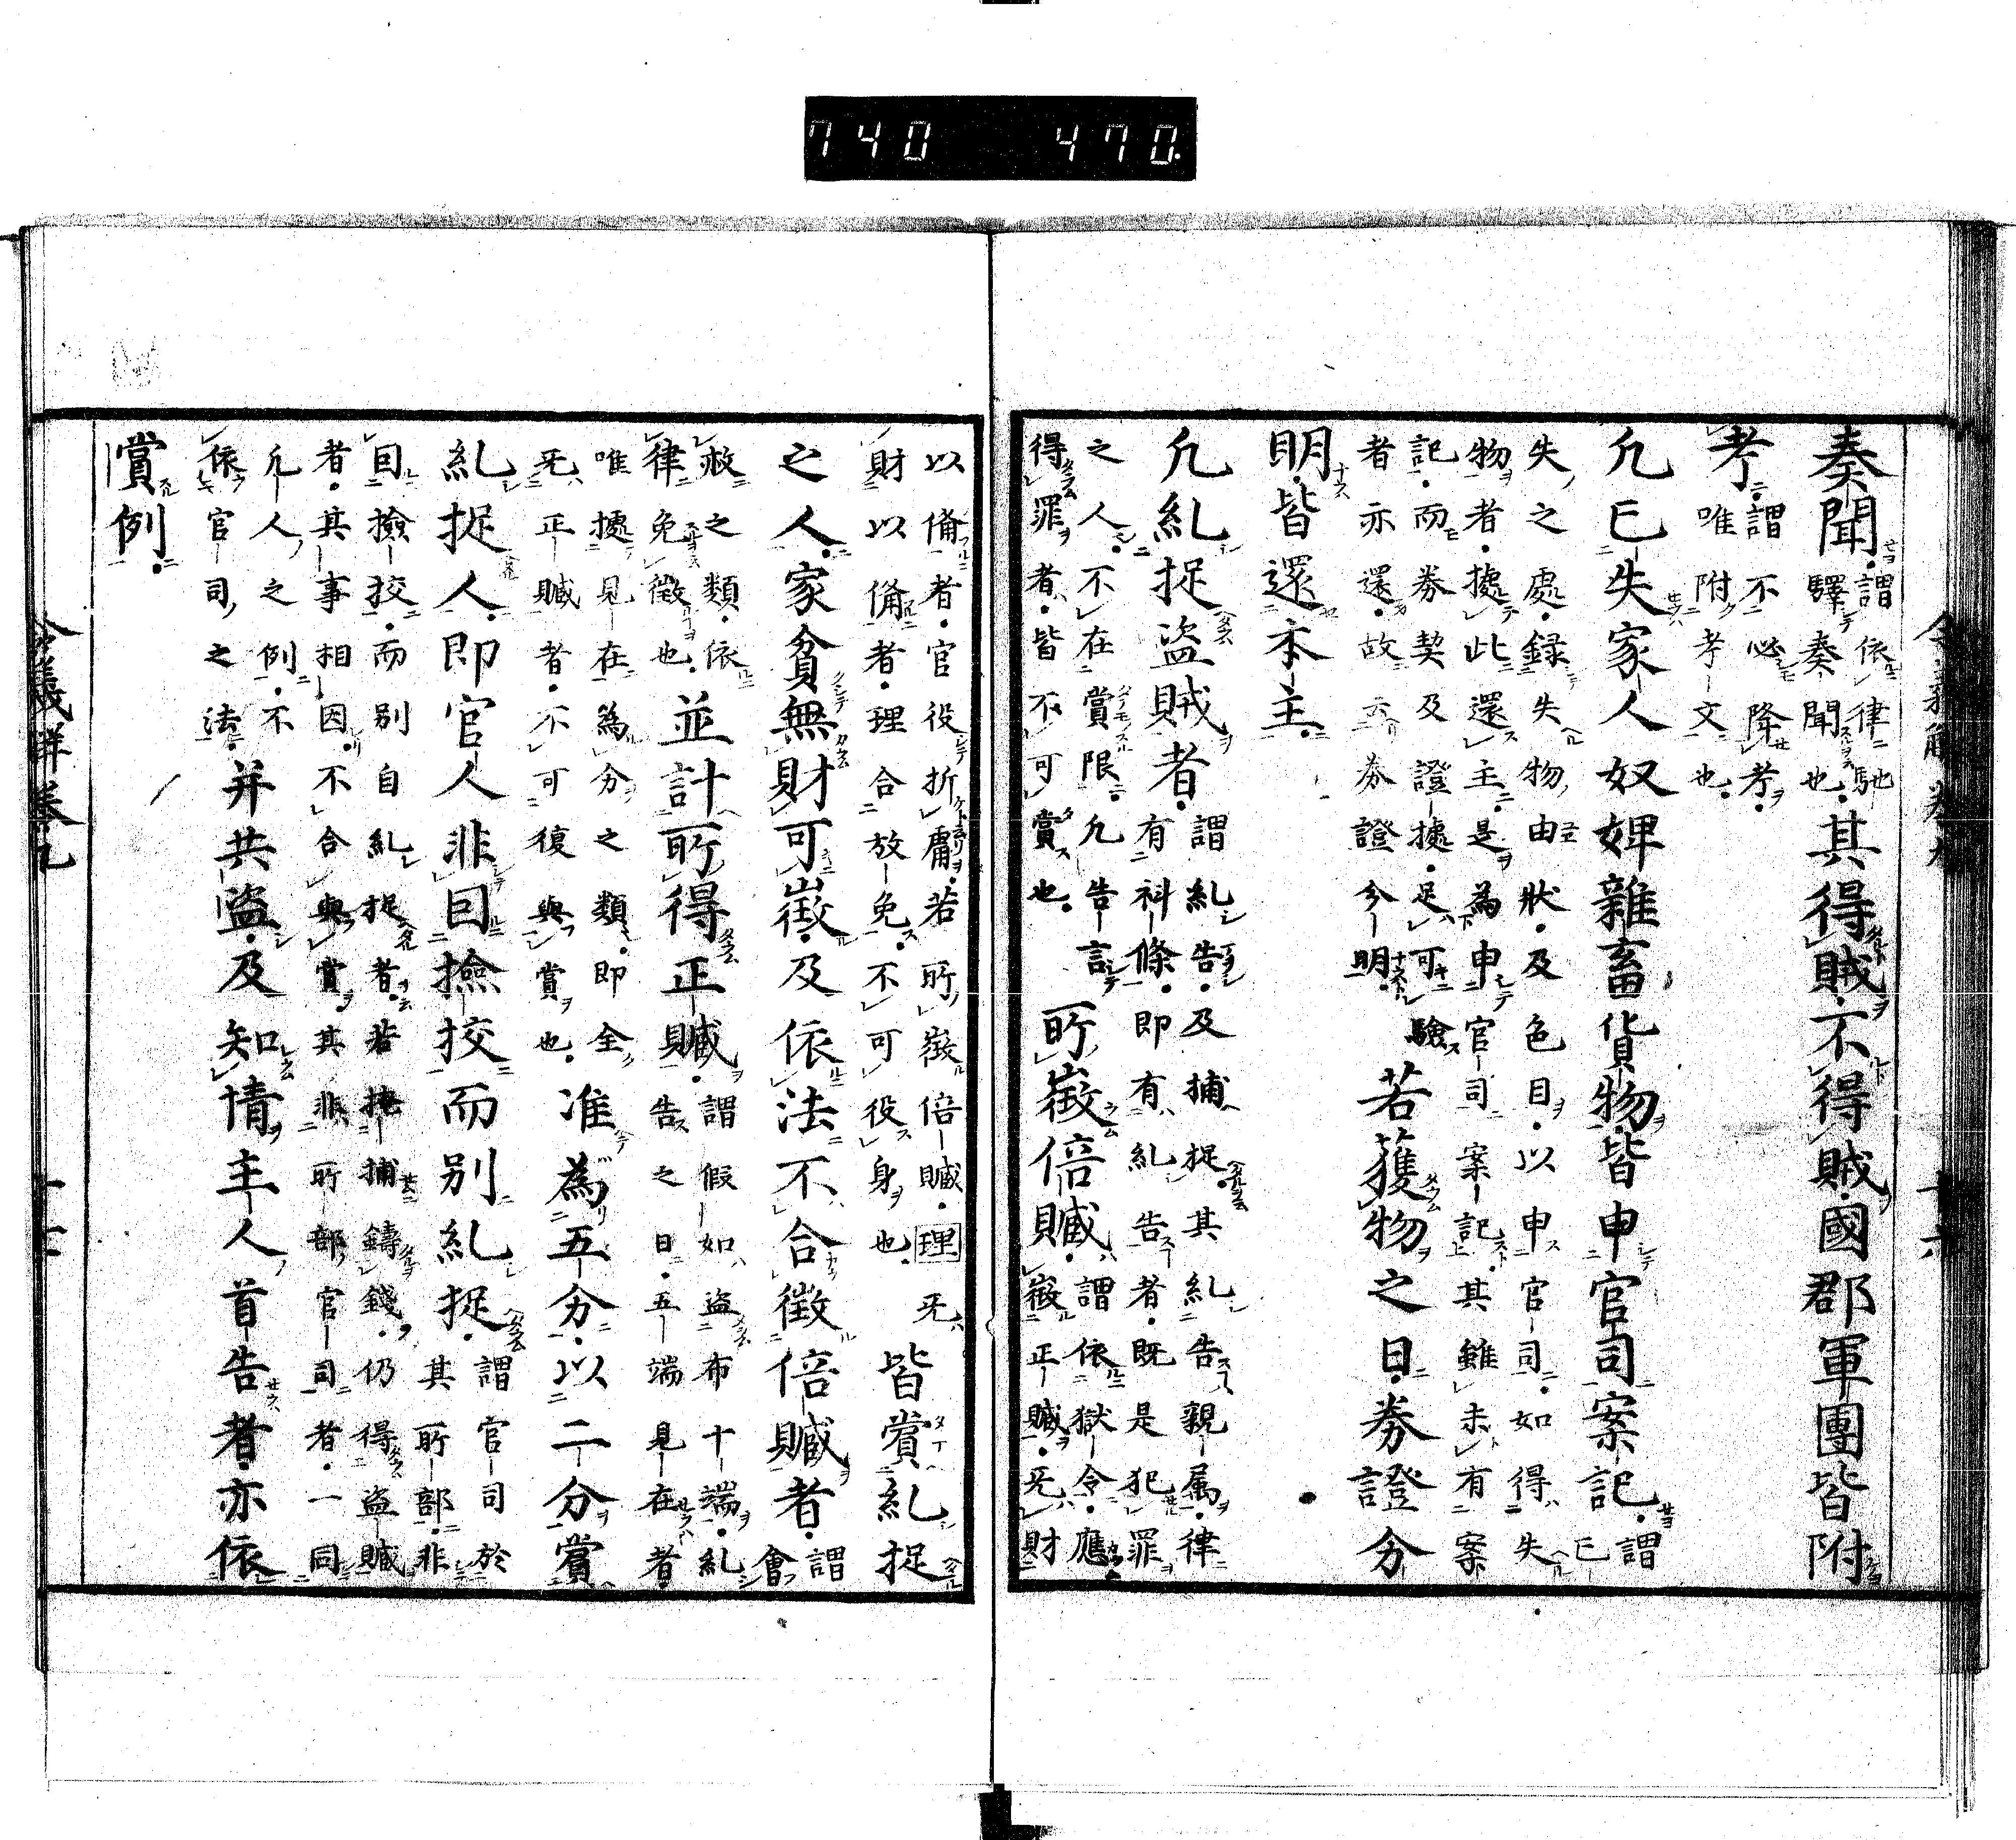 740 470
令義解 卷九 十六
奏聞謂依律馳
驛奏聞也其得賊不得賊國郡軍團皆附
考謂不必降考
唯附考文也
凡亡失家人奴婢雜畜貨物皆申官司案記謂
亡
失之處録失物由狀及色目以申官司如得失
物者據此還主是為申官司案記其雖未有案
記而券契及證據足可驗
者亦還故云券證分明若獲物之日券證分
明皆還本主
凡糺捉盗賊者謂糺告及捕捉其糺告親属律
有科條即有糺告者既是犯罪
之人不在賞限凡告言
得罪者皆不可賞也所徵倍贓謂依獄令應
徵正贓无財
以俻者官役折庸若所徵倍贓理无
財以俻者理合放免不可役身也皆賞糺捉
之人家貧無財可徵及依法不合徵倍贓者謂
會
赦之類依
律免徵也並計所得正贓謂假如盗布十端糺
告之日五端見在者
唯據見在為分之類即全
无正贓者不可復與賞也准為五分以二分賞
糺捉人即官人非因撿挍而別糺捉謂官司於
其所部非
因撿挍而別自糺捉者若掩捕鑄錢仍得盗贓
者其事相因不合與賞其非所部官司者一同
凡人之例不
依官司之法并共盗及知情主人首告者亦依
賞例
令義解 卷九 十七